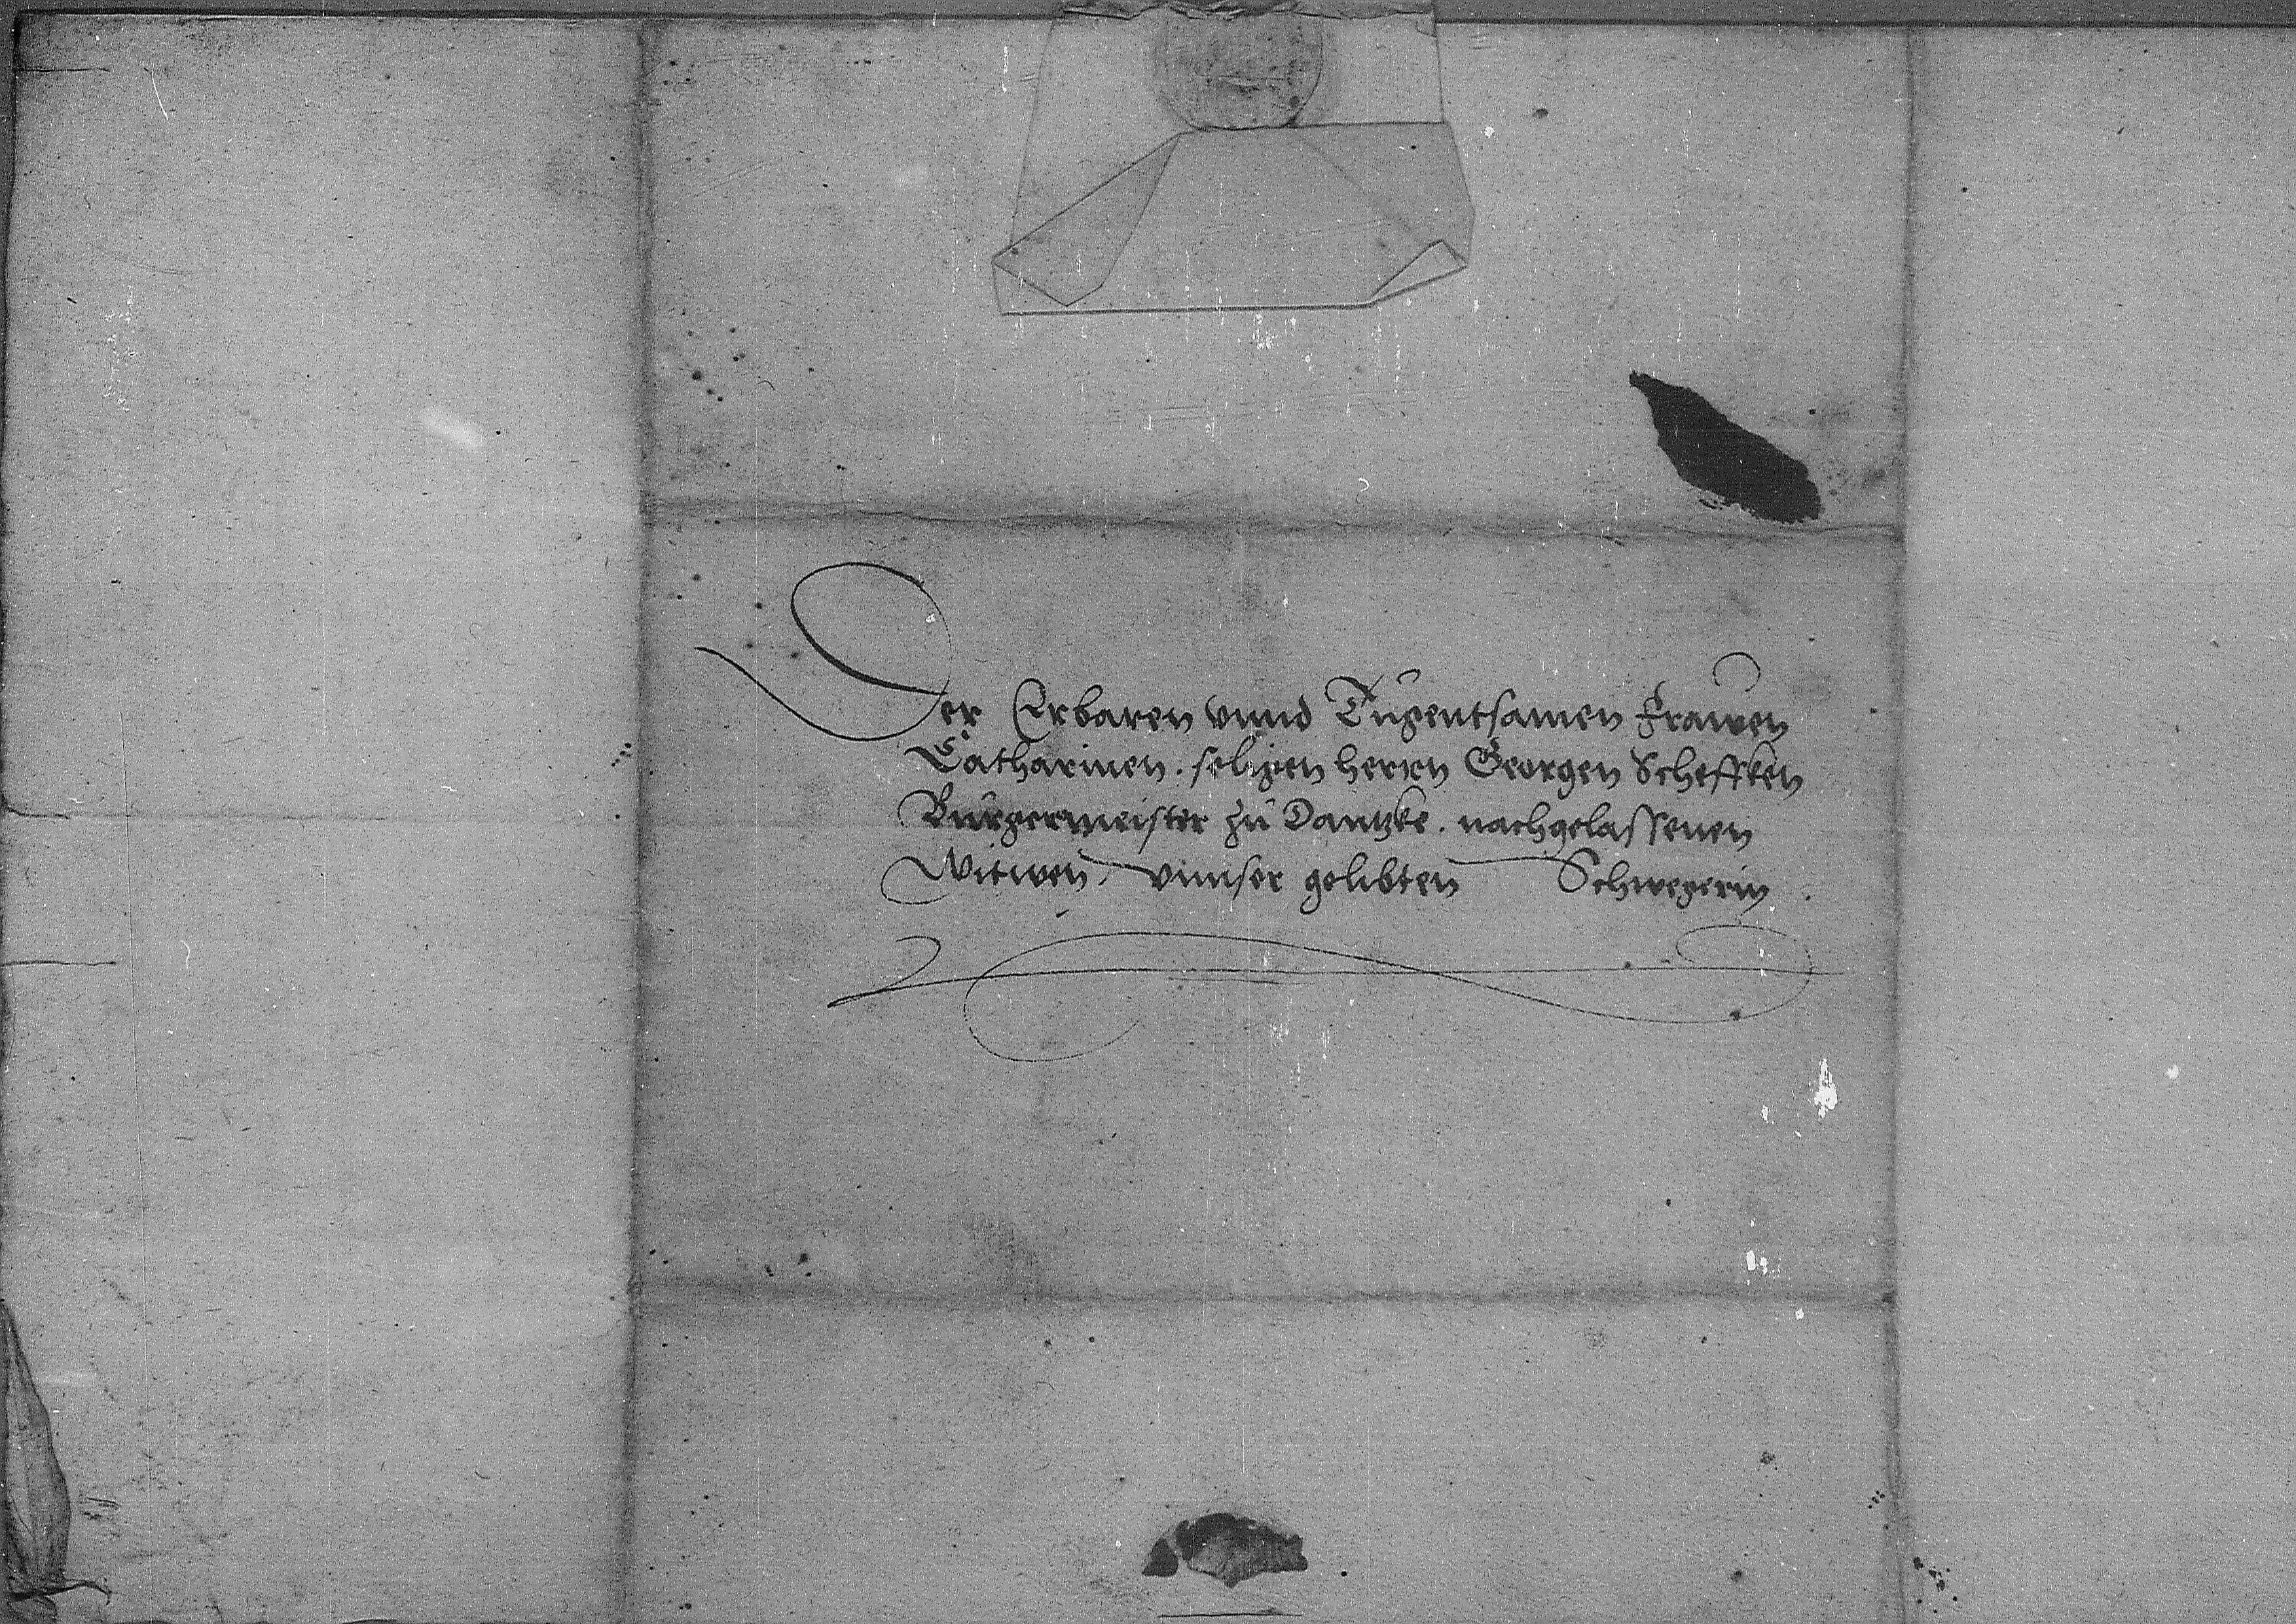 Der Erbaren vnnd Tugentsamen Frawen
Catharinen. seligen herrn Georgen Scheffken
Burgermeister zu Dantzke. nachgelassenen
Witwen, vnnser gelibten Schwegerin.